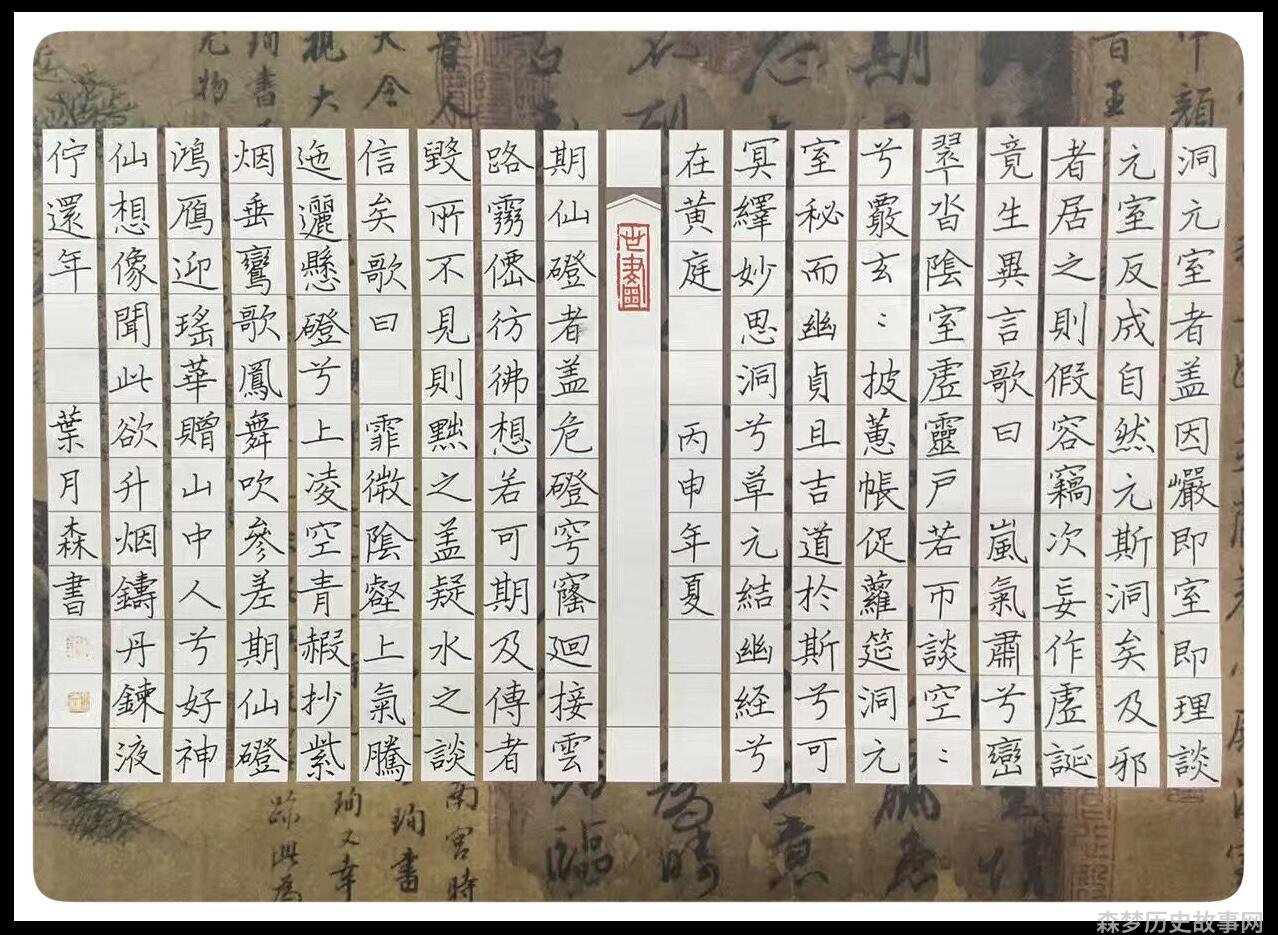 洞元室者盖因巖即室即理談
元室反成自然元斯洞矣及邪
者居之則假容竊次妄作虛誕
竟生異言歌曰 嵐氣肅兮巒
翠沓陰室虛靈戶若帀談空〻
兮覈玄〻披蕙帳促蘿筵洞元
室秘而幽貞且吉道於斯兮可
冥繹妙思洞兮草元結幽経兮
在黄庭 丙申年夏
期仙磴者盖危磴穹窿迴接雲
路霧僊彷彿想若可期及傳者
毀所不見則黙之盖疑水之談
信矣歌曰 霏微陰壑上氣騰
迤邐懸磴兮上凌空青赮抄紫
烟垂鸞歌鳳舞吹參差期仙磴
鴻鴈迎瑤華贈山中人兮好神
仙想像聞此欲升烟鑄丹鍊液
佇還年 葉月森書
森梦历史故事网